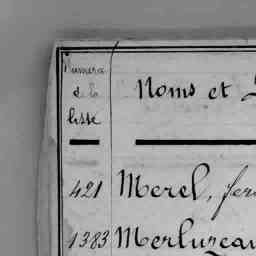 Numéros
de la
liste
Noms et
421 Morel, fer
1383 Merluzeau